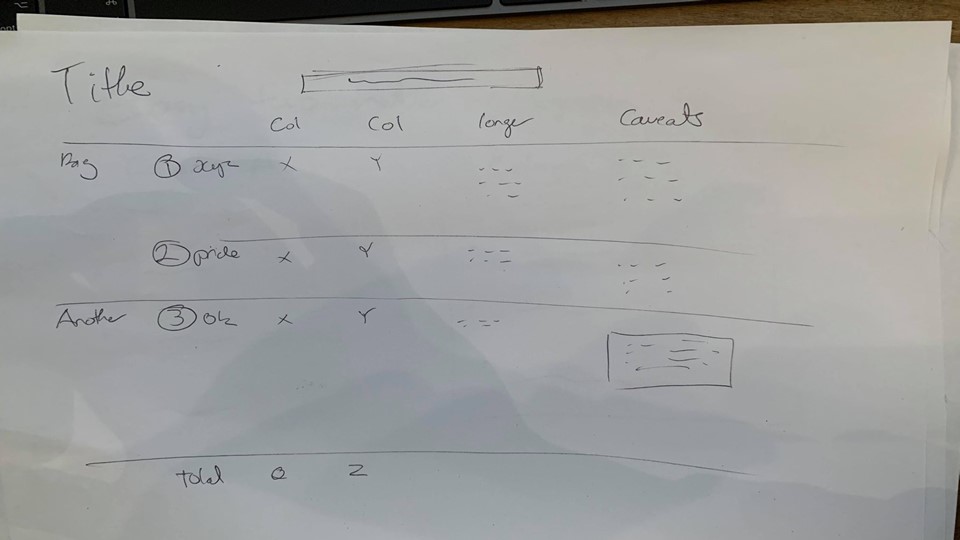 Title
Col Col longer Caveats
① xyz X Y
② pride X Y
Another ③ Ok X Y
total Q Z